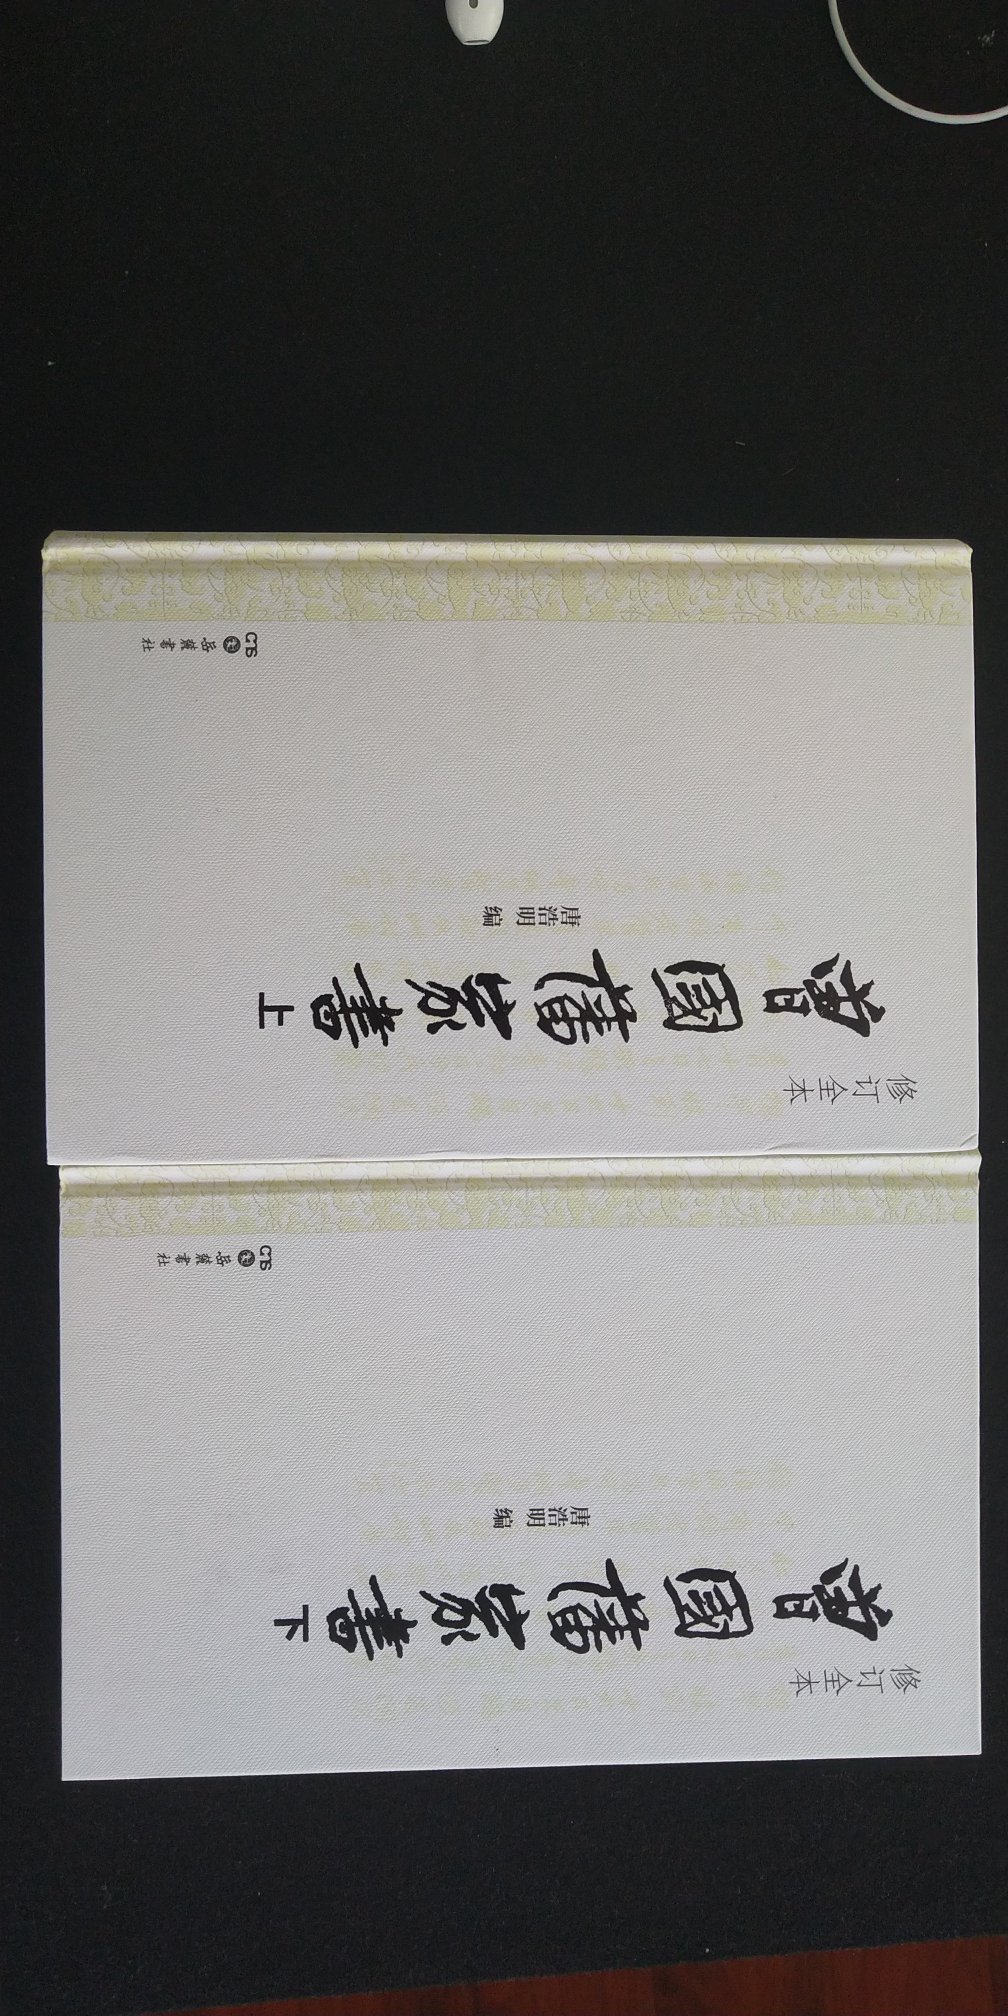 修订全本
曾國藩家書 上
唐浩明 编
CTS 岳麓書社
修订全本
曾國藩家書 下
唐浩明 编
CTS 岳麓書社